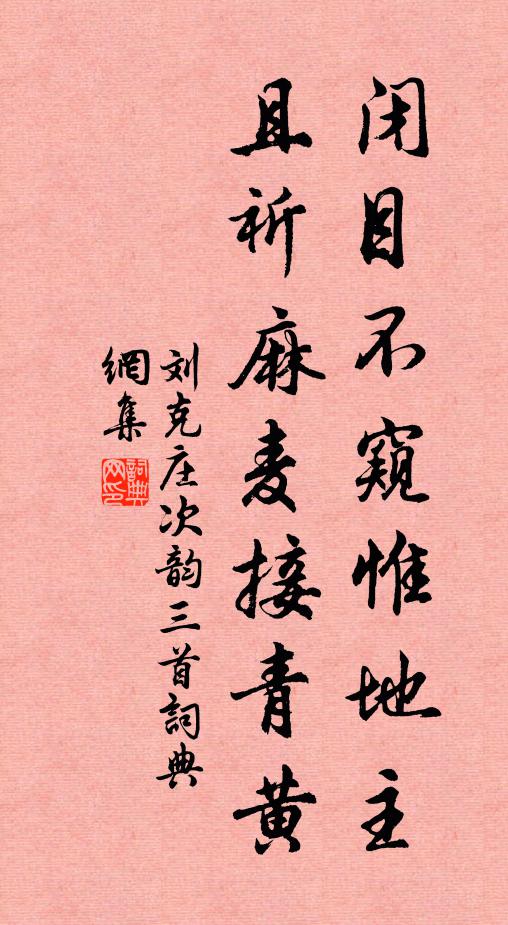 闭目不窥惟地主
且祈麻麦接青黄
刘克庄次韵三首詞典
網集
詞典
网印